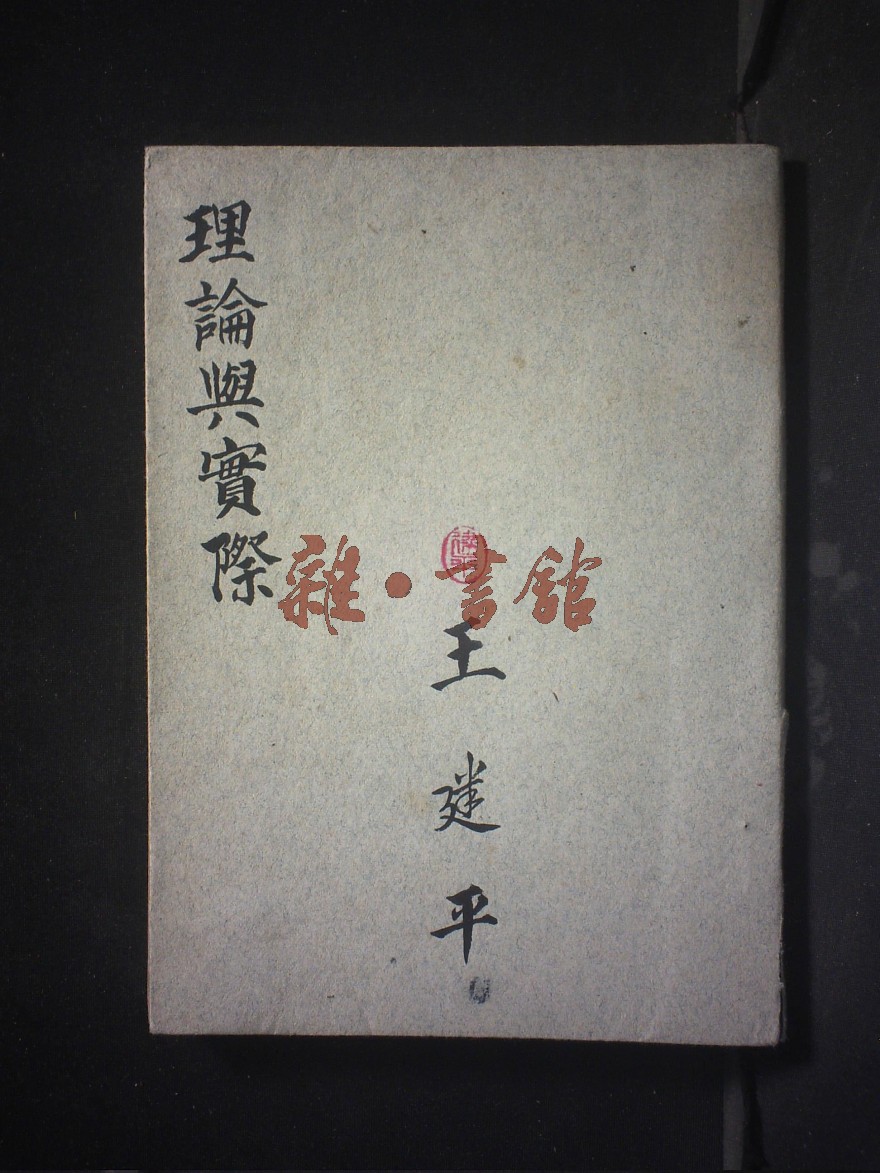 理論與實際
雜·書館
王建平